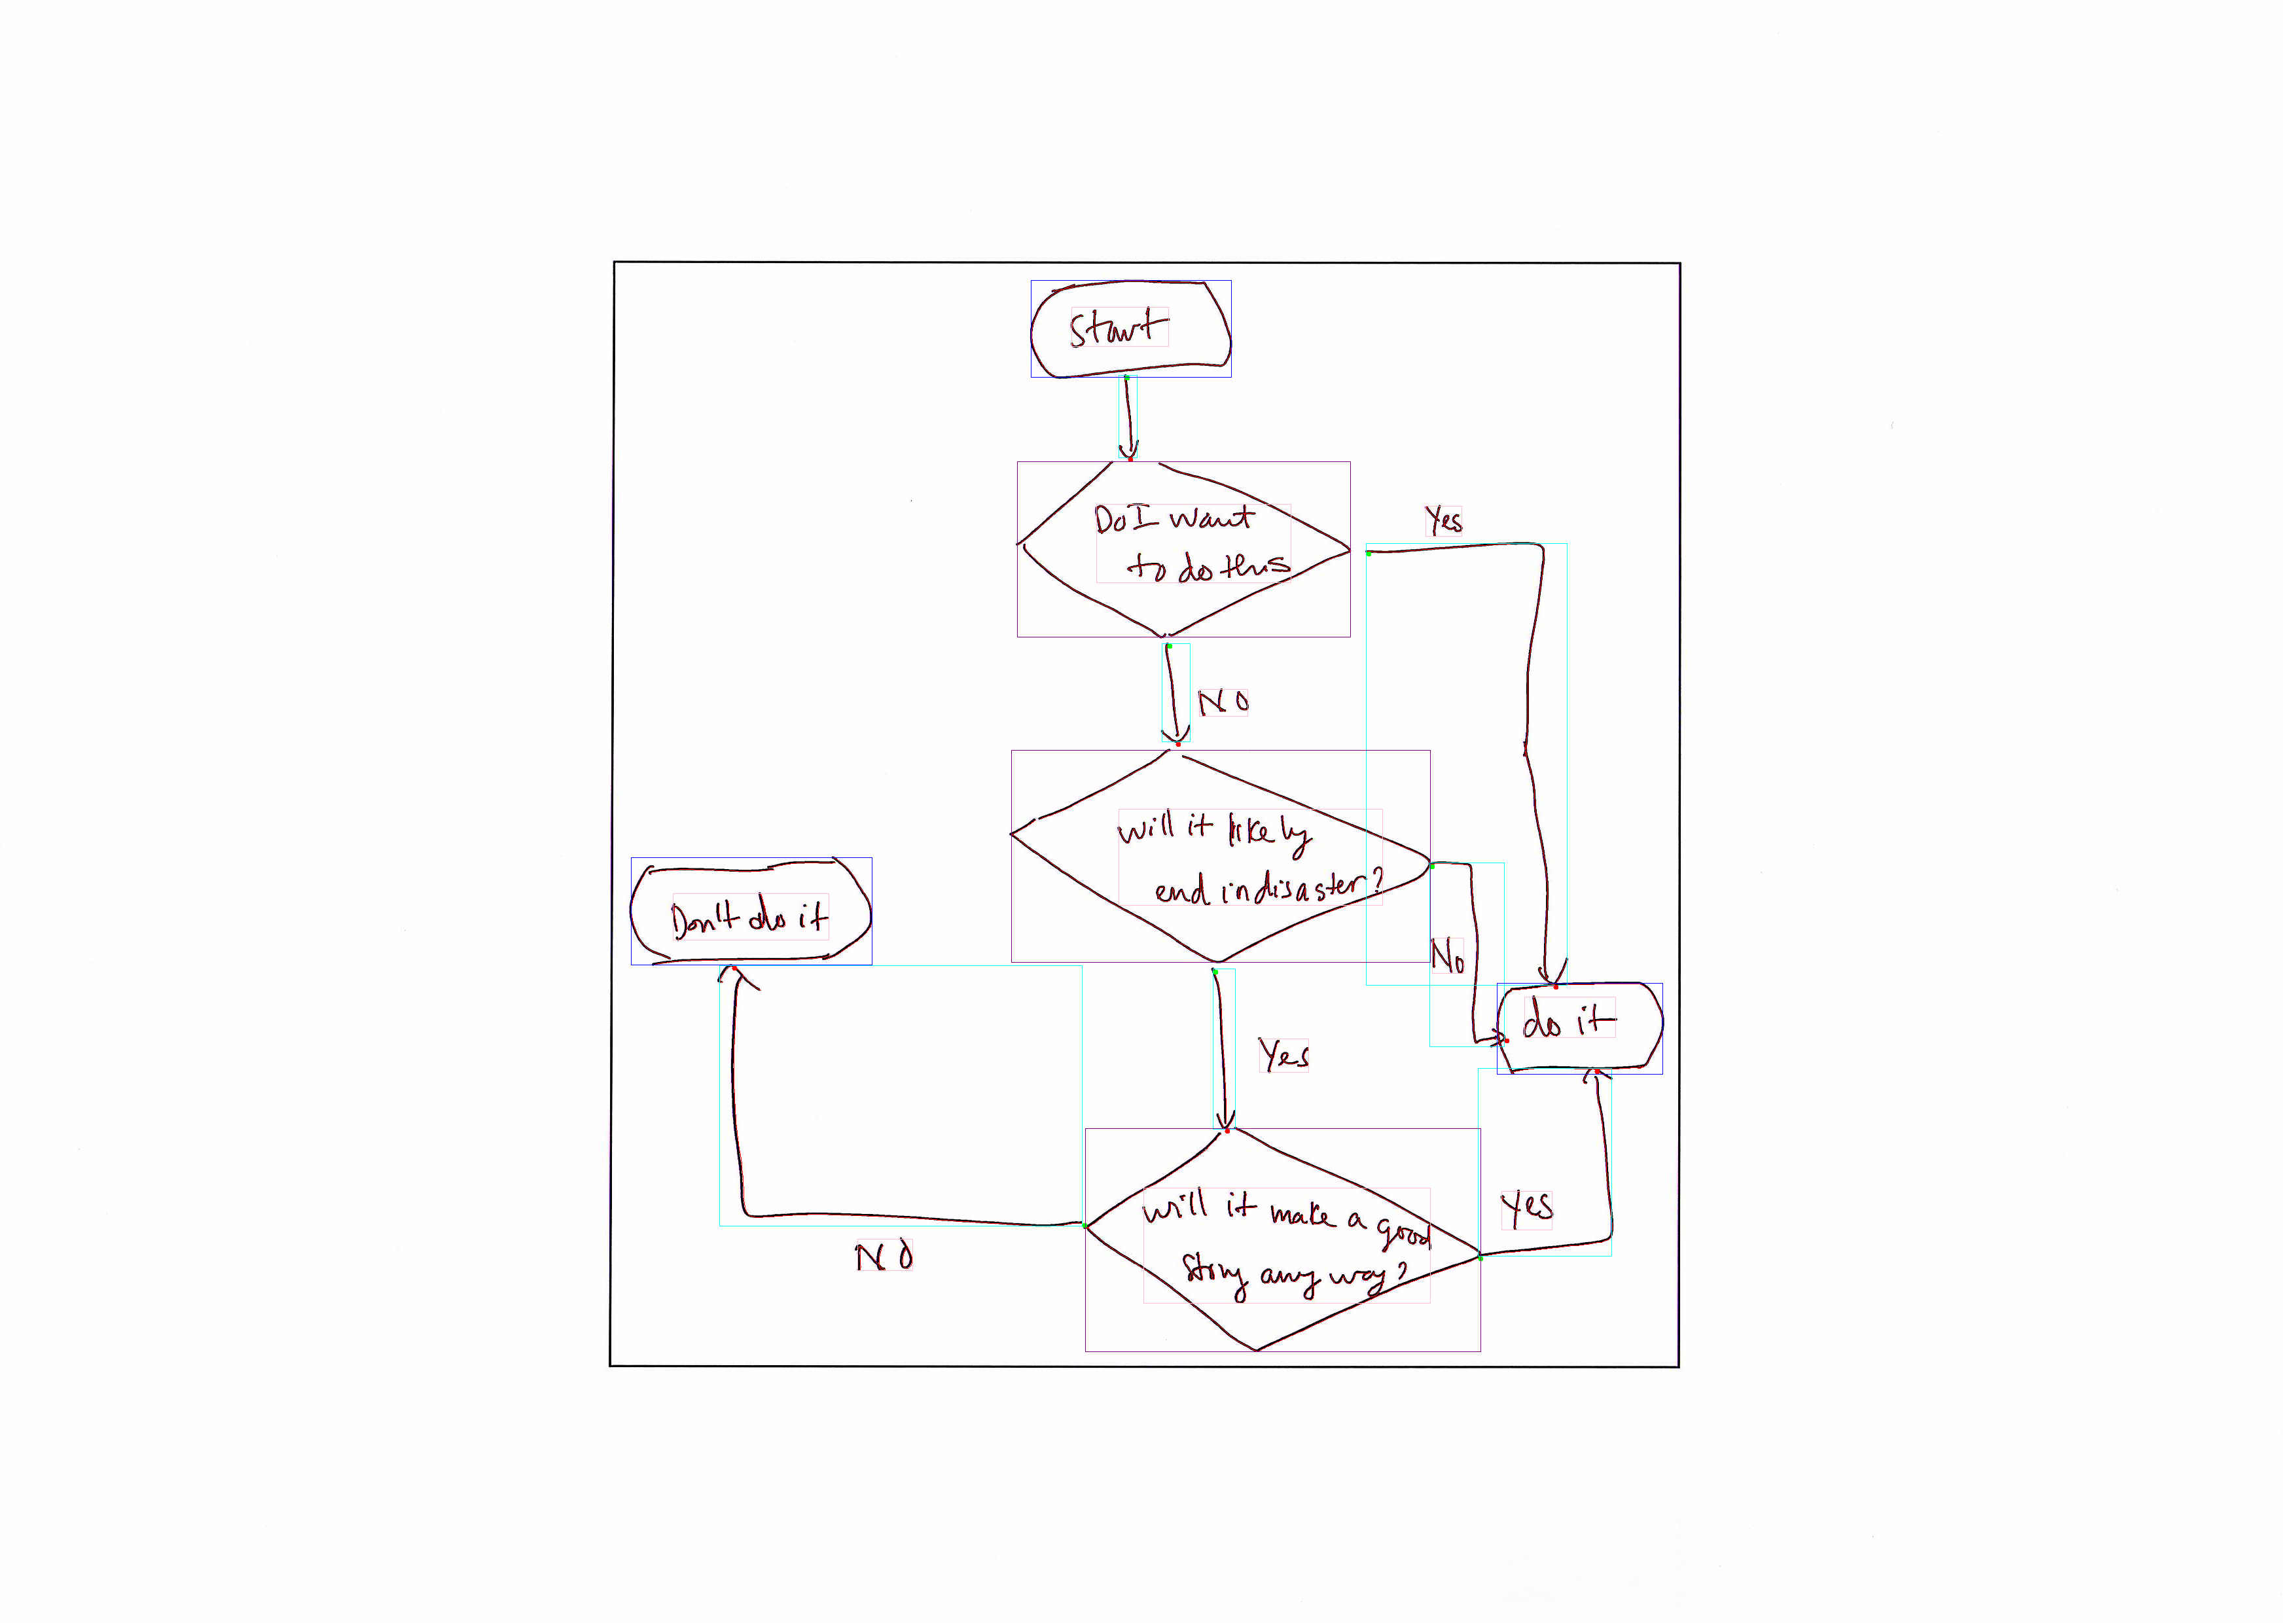 Start
Do I want
to do this
Yes
NO
will it likely
end in disaster?
Don't do it
No
do it
Yes
will it make a good
story any way?
Yes
NO